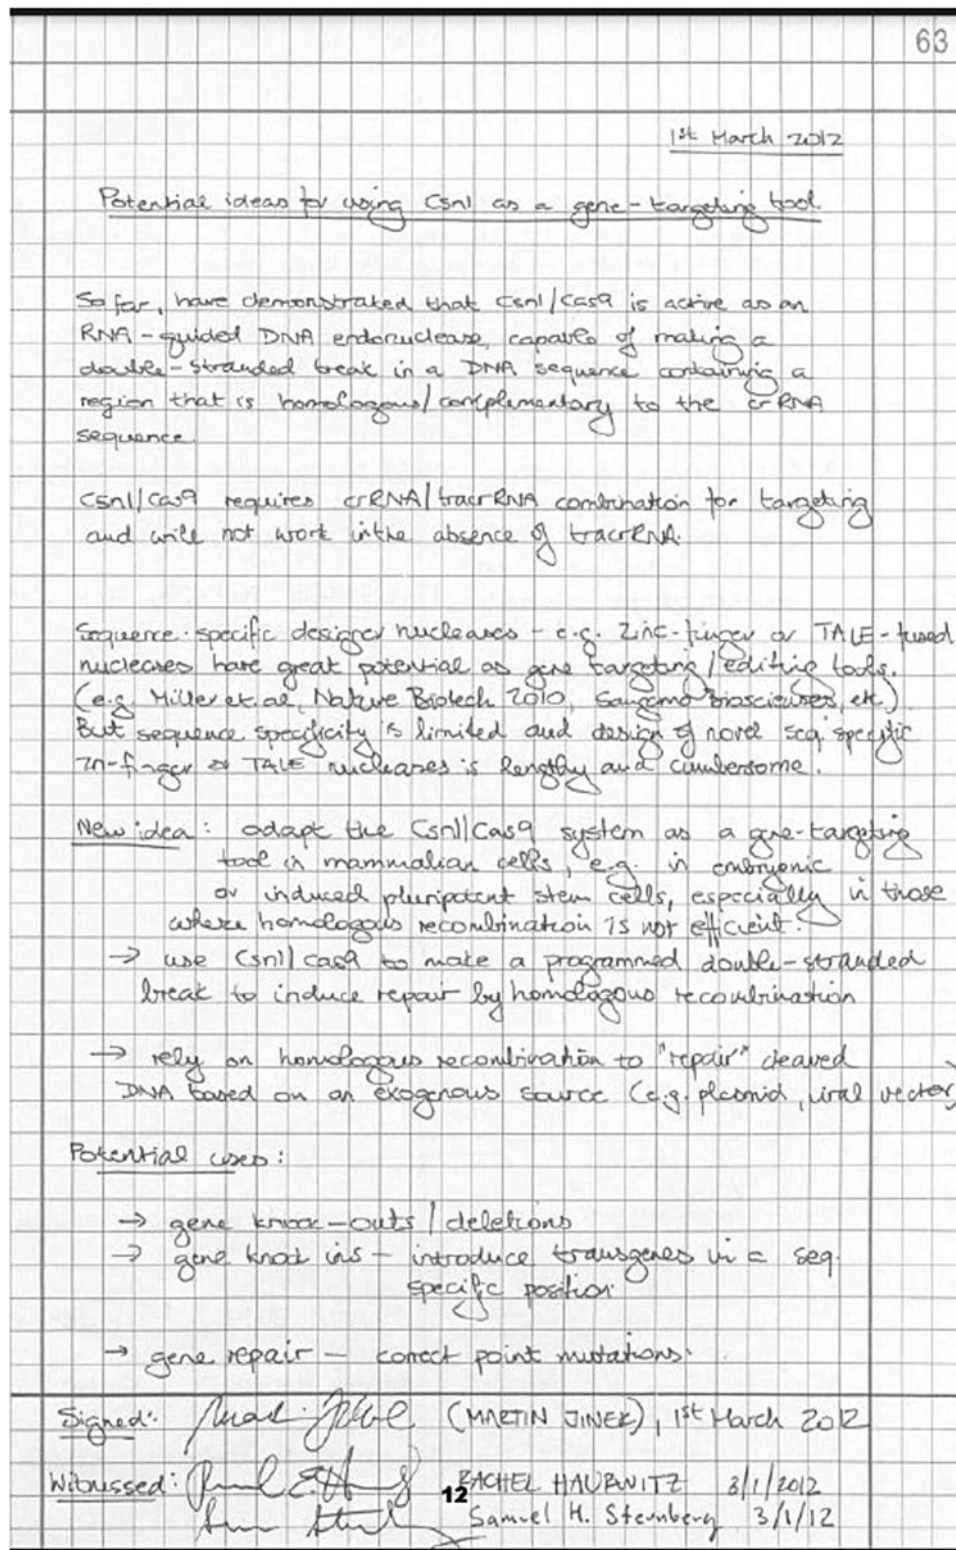 63
1st March 2012
Potential ideas for using Csn1 as a gene-targeting tool
So far, have demonstrated that Csn1/Cas9 is active as an
RNA-guided DNA endonuclease, capable of making a
double-stranded break in a DNA sequence containing a
region that is homologous/complementary to the crRNA
sequence
Csn1/Cas9 requires crRNA/tracrRNA combination for targeting
and will not work in the absence of tracrRNA.
Sequence-specific designer nucleases - e.g. Zinc-finger or TALE-fused
nucleases have great potential as gene targeting/editing tools.
(e.g. Miller et. al, Nature Biotech 2010, Sangamo Biosciences, etc)
But sequence specificity is limited and design of novel seq. specific
Zn-finger or TALE nucleases is lengthy and cumbersome.
New idea: adapt the Csn1/Cas9 system as a gene-targeting
tool in mammalian cells, e.g. in embryonic
or induced pluripotent stem cells, especially in those
where homologous recombination is not efficient.
→ use Csn1/Cas9 to make a programmed double-stranded
break to induce repair by homologous recombination
→ rely on homologous recombination to "repair" cleaved
DNA based on an exogenous source (e.g. plasmid, viral vector)
Potential uses:
→ gene knock-outs/deletions
→ gene knock ins - introduce transgenes in a seq.
specific position
→ gene repair - correct point mutations.
Signed: (MARTIN JINEK), 1st March 2012
Witnessed: RACHEL HAURWITZ 3/1/2012
12
Samuel H. Sternberg 3/1/12